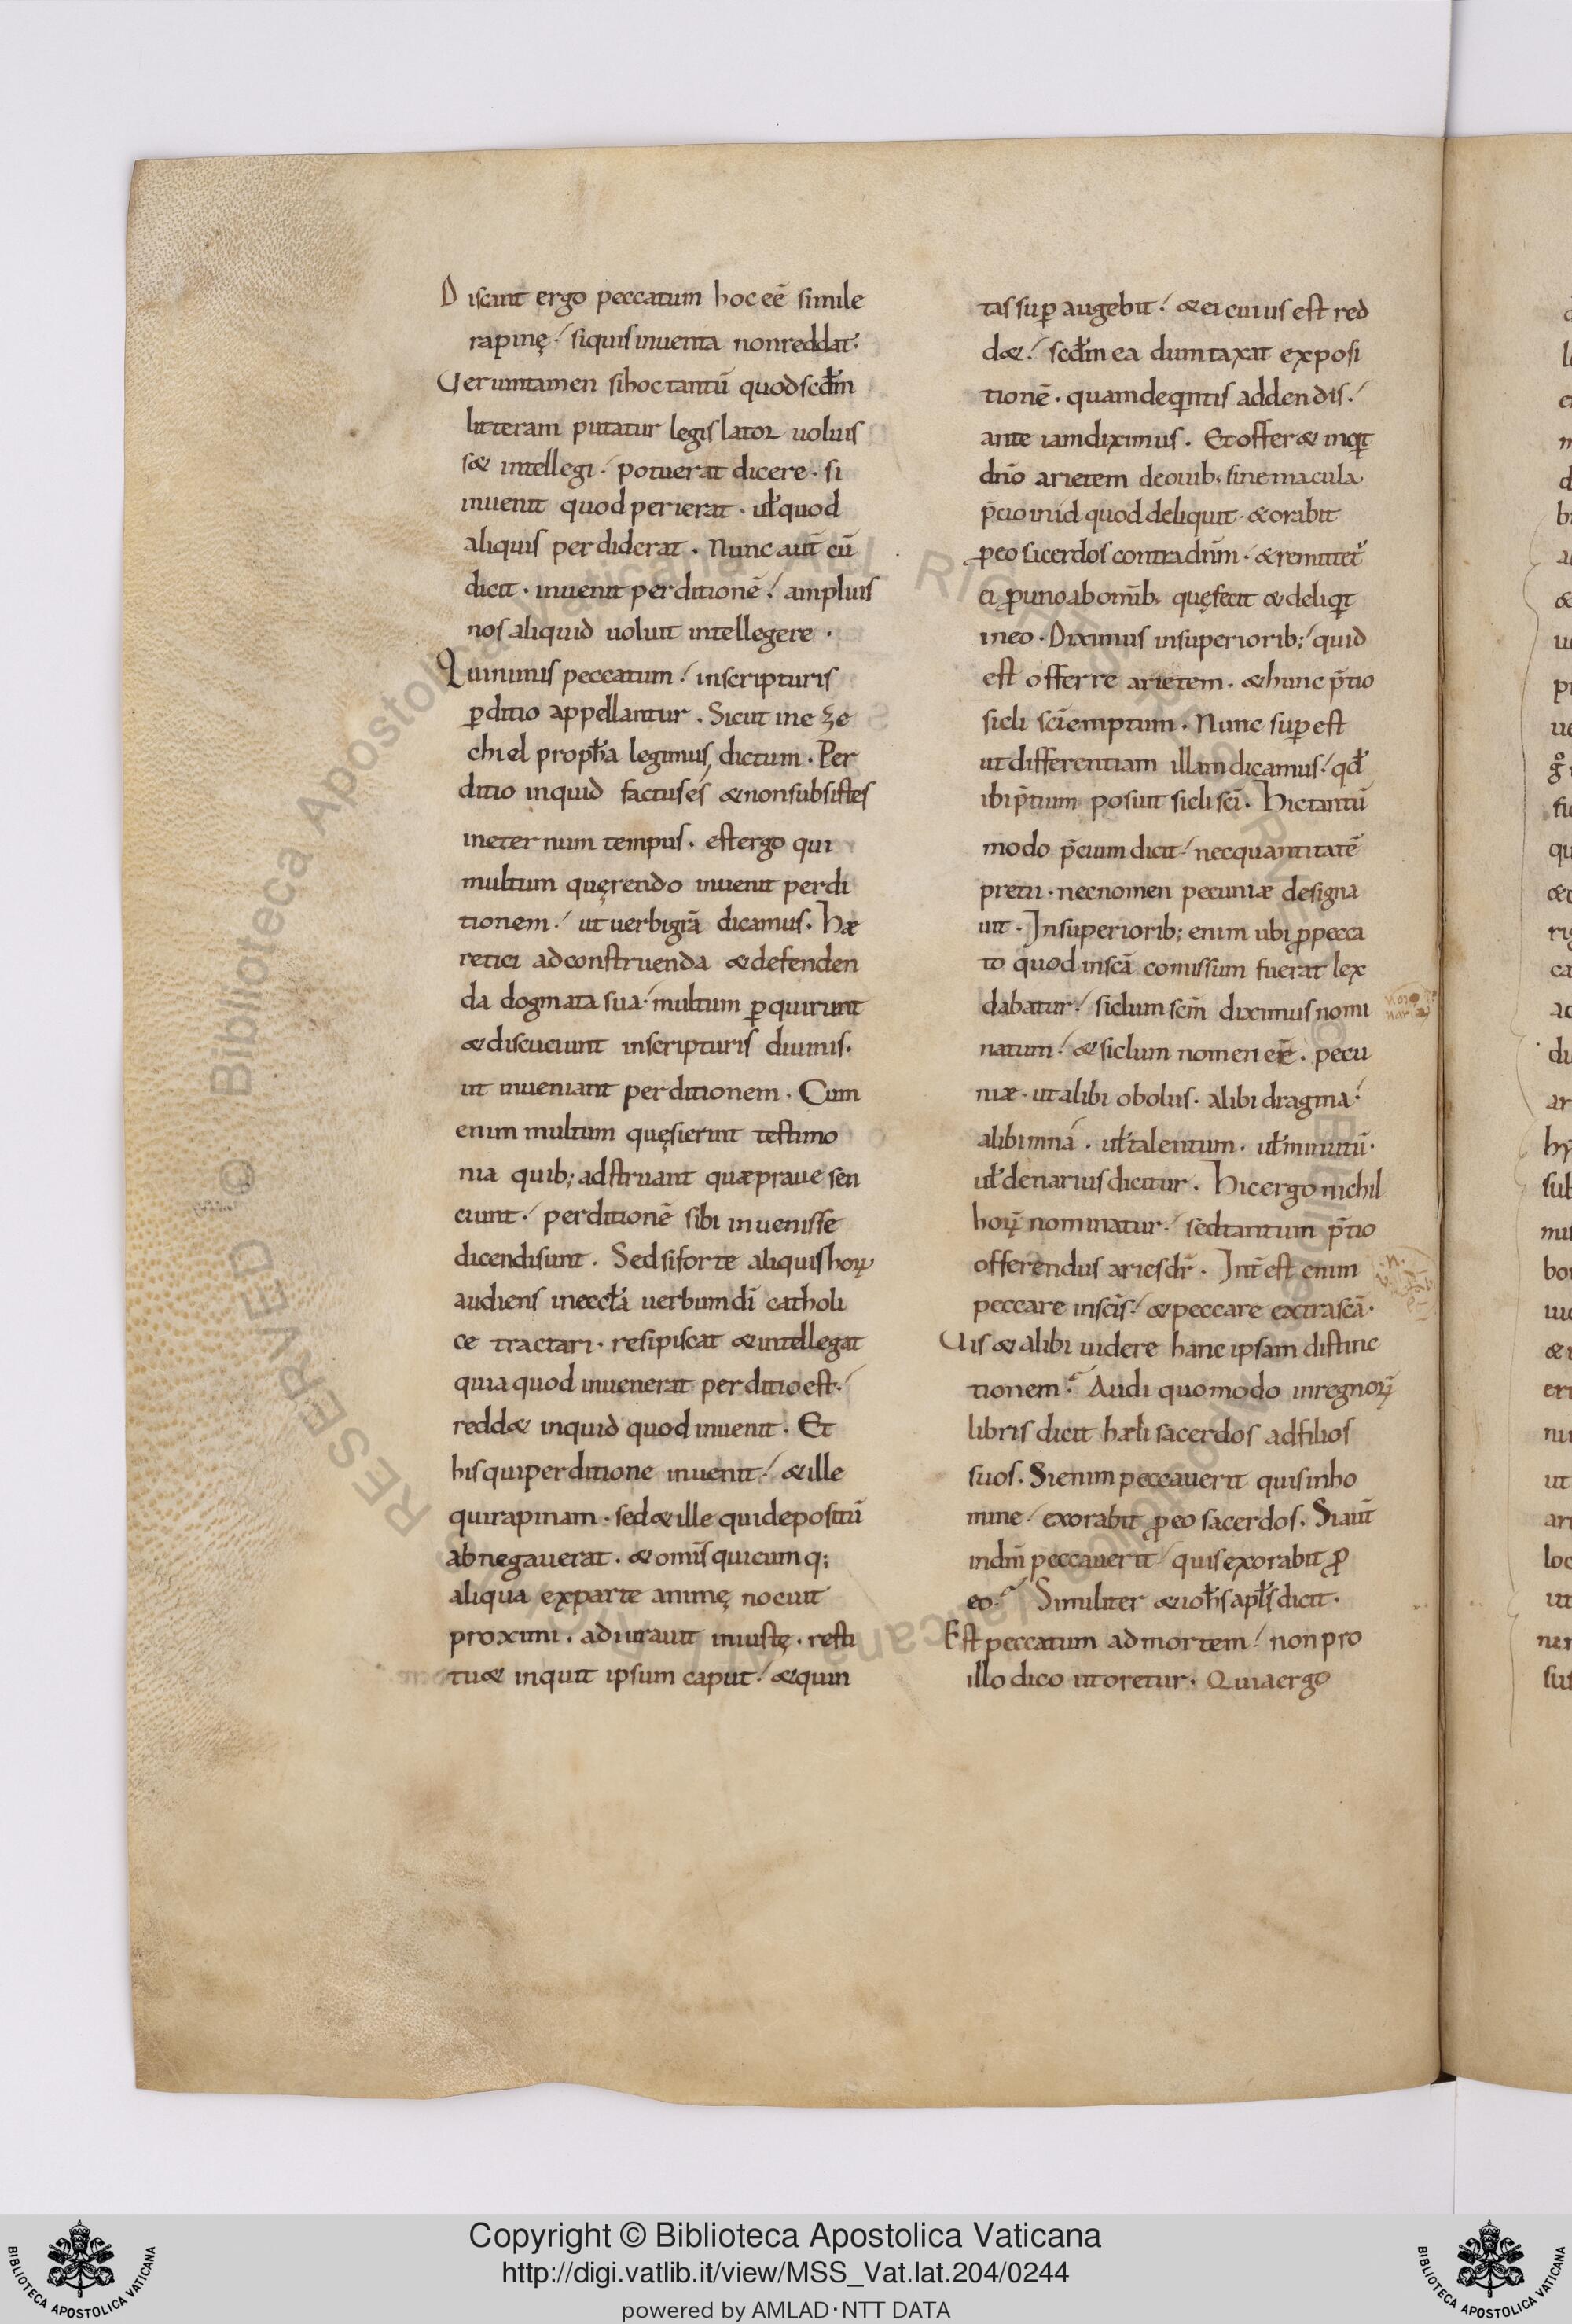 Discant ergo peccatum hoc eē simile
rapinę. siquis inuenta non reddat.
Uerumtamen si hoc tantū quod scdm̄
litteram putatur legislator uoluis
s& intellegi. potuerat dicere. si
inuenit quod perierat. uł quod
aliquis perdiderat. Nunc aut̄ cū
dicit. inuenit perditionē. amplius
nos aliquid uoluit intellegere.
Qui nimis peccatum. in scripturis
p̱ditio appellantur. Sicut in eze
chiel propħa legimus dictum. Per
ditio inquid factus és & non subsistes
in eternum tempus. est ergo qui
multum quęrendo inuenit perdi
tionem. ut uerbi grā dicamus. hæ
retici ad construenda & defenden
da dogmata sua. multum p̱quirunt
& discuciunt in scripturis diuinis.
ut inueniant perditionem. Cum
enim multum quęsierint testimo
nia quib; adstruant quæ praue sen
ciunt. perditionē sibi inuenisse
dicendi sunt. Sed si forte aliquis horꝝ
audiens in eccła uerbum dī catholi
ce tractari. resipiscat & intellegat
quia quod inuenerat perditio est.
redd& inquid quod inuenit. Et
his qui perditione inuenit. & ille
qui rapinam. sed & ille qui depositū
abnegauerat. & omīs quicumq;
aliqua ex parte animę nocuit
proximi. adiurauit iniustę. resti
tu& inquit ipsum caput. & quin
tas sup̱ augebit. & ei cuius est red
d&. scdm̄ ea dumtaxat exposi
tionē. quam de qͥntis addendis.
ante iam diximus. Et offer& inqͥt
dn̄o arietem de ouib; sine macula
p̄cio in id quod deliquit. & orabit
p̱ eo sacerdos contra dn̄m. & remittet᷑
ei ꝓ uno ab om̄ib; quę fecit & deliqͥt
in eo. Diximus in superiorib; quid
est offerre arietem. & hunc p̄tio
sicli scī emptum. Nunc sup̱est
ut differentiam illam dicamus. qđ
ibi p̄tium posuit sicli scī. Hic tantū
modo p̄cium dicit. nec quantitatē
pretii. nec nomen pecuniæ designa
uit. In superiorib; enim ubi ꝓ pecca
to quod in scā comissum fuerat lex
dabatur. siclum scm̄ diximus nomi
natum. & siclum nomen eē. pecu
niæ. ut alibi obolus. alibi dragma.
alibi mná. uł talentum. uł minutū.
uł denarius dicitur. Hic ergo nichil
horꝝ nominatur. sed tantum p̄tio
offerendus aries dr̄. Int̄ est enim
peccare in scīs. & peccare extra scā.
Uis & alibi uidere hanc ipsam distinc
tionem. Audi quomodo in regnorꝝ
libris dicit hæli sacerdos ad filios
suos. Si enim peccauerit quis in ho
mine. exorabit ꝓ eo sacerdos. Si aut̄
in dm̄ peccauerit. quis exorabit ꝓ
eo. Similiter & ioħs apłs dicit.
Est peccatum ad mortem. non pro
illo dico ut oretur. Quia ergo
Copyright © Biblioteca Apostolica Vaticana
http://digi.vatlib.it/view/MSS_Vat.lat.204/0244
powered by AMLAD·NTT DATA
BIBLIOTECA APOSTOLICA VATICANA
BIBLIOTECA APOSTOLICA VATICANA